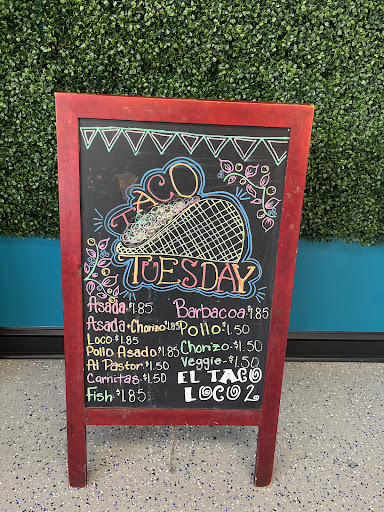 TACO
TUESDAY
Asada-$1.85
Asada+Chorizo$1.85
Loco-$1.85
Pollo Asado-$1.85
Al Pastor-$1.50
Carnitas-$1.50
Fish-$1.85
Barbacoa-$1.85
Pollo-$1.50
Chorizo-$1.50
Veggie-$1.50
EL TACO
LOCO 2